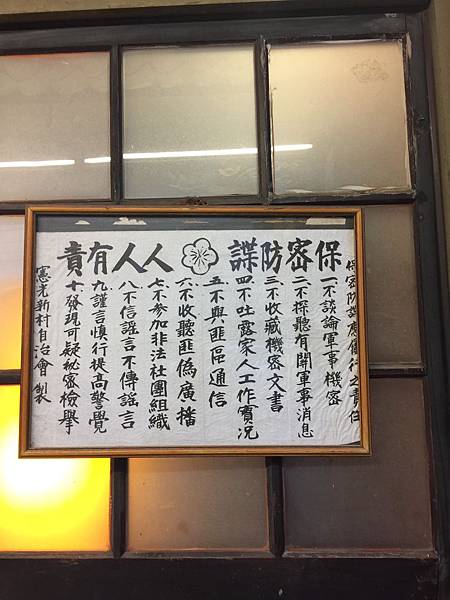 保密防諜 人人有責
保密防諜應履行之責任
一不談論軍事機密
二不探聽有關軍事消息
三不收藏機密文書
四不吐露家人工作實況
五不與匪區通信
六不收聽匪偽廣播
七不參加非法社團組織
八不信謠言不傳謠言
九謹言慎行提高警覺
十發現可疑秘密檢舉
憲光新村自治會製